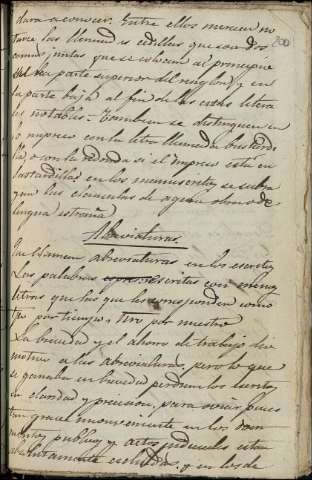 dara a conocer. Entre ellos merecen no
200
tarse las llamadas cedillas que son dos
comas juntas que se colocan al principio
del la parte superior del renglon, y en
la parte baja al fin de las citas litera
les notables. Tambien se distinguen en
lo impreso con la letra llamada bastardi
lla, o con la redonda si el impreso está en
bastardilla: en los manuscritos se subra
yan las clausulas de agena obra o de
lengua estraña
Abreviaturas.
Se llaman abreviaturas en los escritos
Las palabras escritas con menos
letras que las que les corresponden como
tpo por tiempo, nro por nuestro
La brevedad y el ahorro de trabajo die
motivo a las abreviaturas, pero lo que
se ganaba en brevedad perdian los escritos
en claridad y precision, para evitar pues
tan grave inconveniente en los docu
mentos publicos y actos judiciales estan
absolutamente escluidas, y en los de